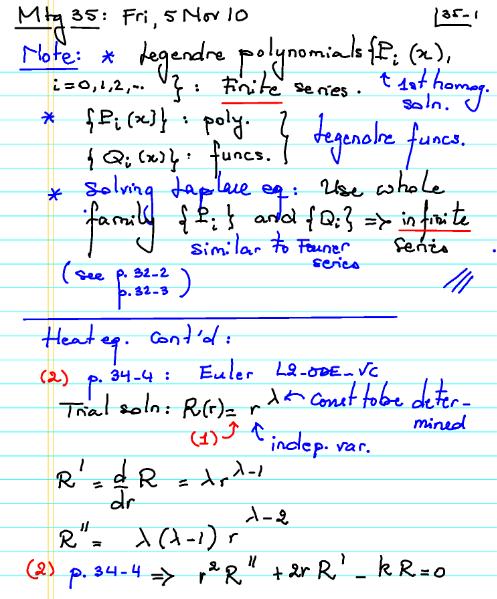 Mtg 35: Fri, 5 Nov 10
35-1
Note: * Legendre polynomials {P_i(x),
i=0,1,2,.. } : Finite series. ↑ 1st homog. soln.
* {P_i(x)} : poly.
{Q_i(x)} : funcs. } Legendre funcs.
* Solving Laplace eq: Use whole
family {P_i} and {Q_i} => infinite
similar to Fourier series
series
(see p. 32-2
p. 32-3)
Heat eq. Cont'd:
(2) p. 34-4 : Euler L2-ODE-VC
Trial soln: R(r) = r^λ ← const to be deter-
mined
(1) ↑ indep. var.
R' = d/dr R = λ r^{λ-1}
R'' = λ(λ-1) r^{λ-2}
(2) p. 34-4 => r² R'' + 2r R' - k R = 0